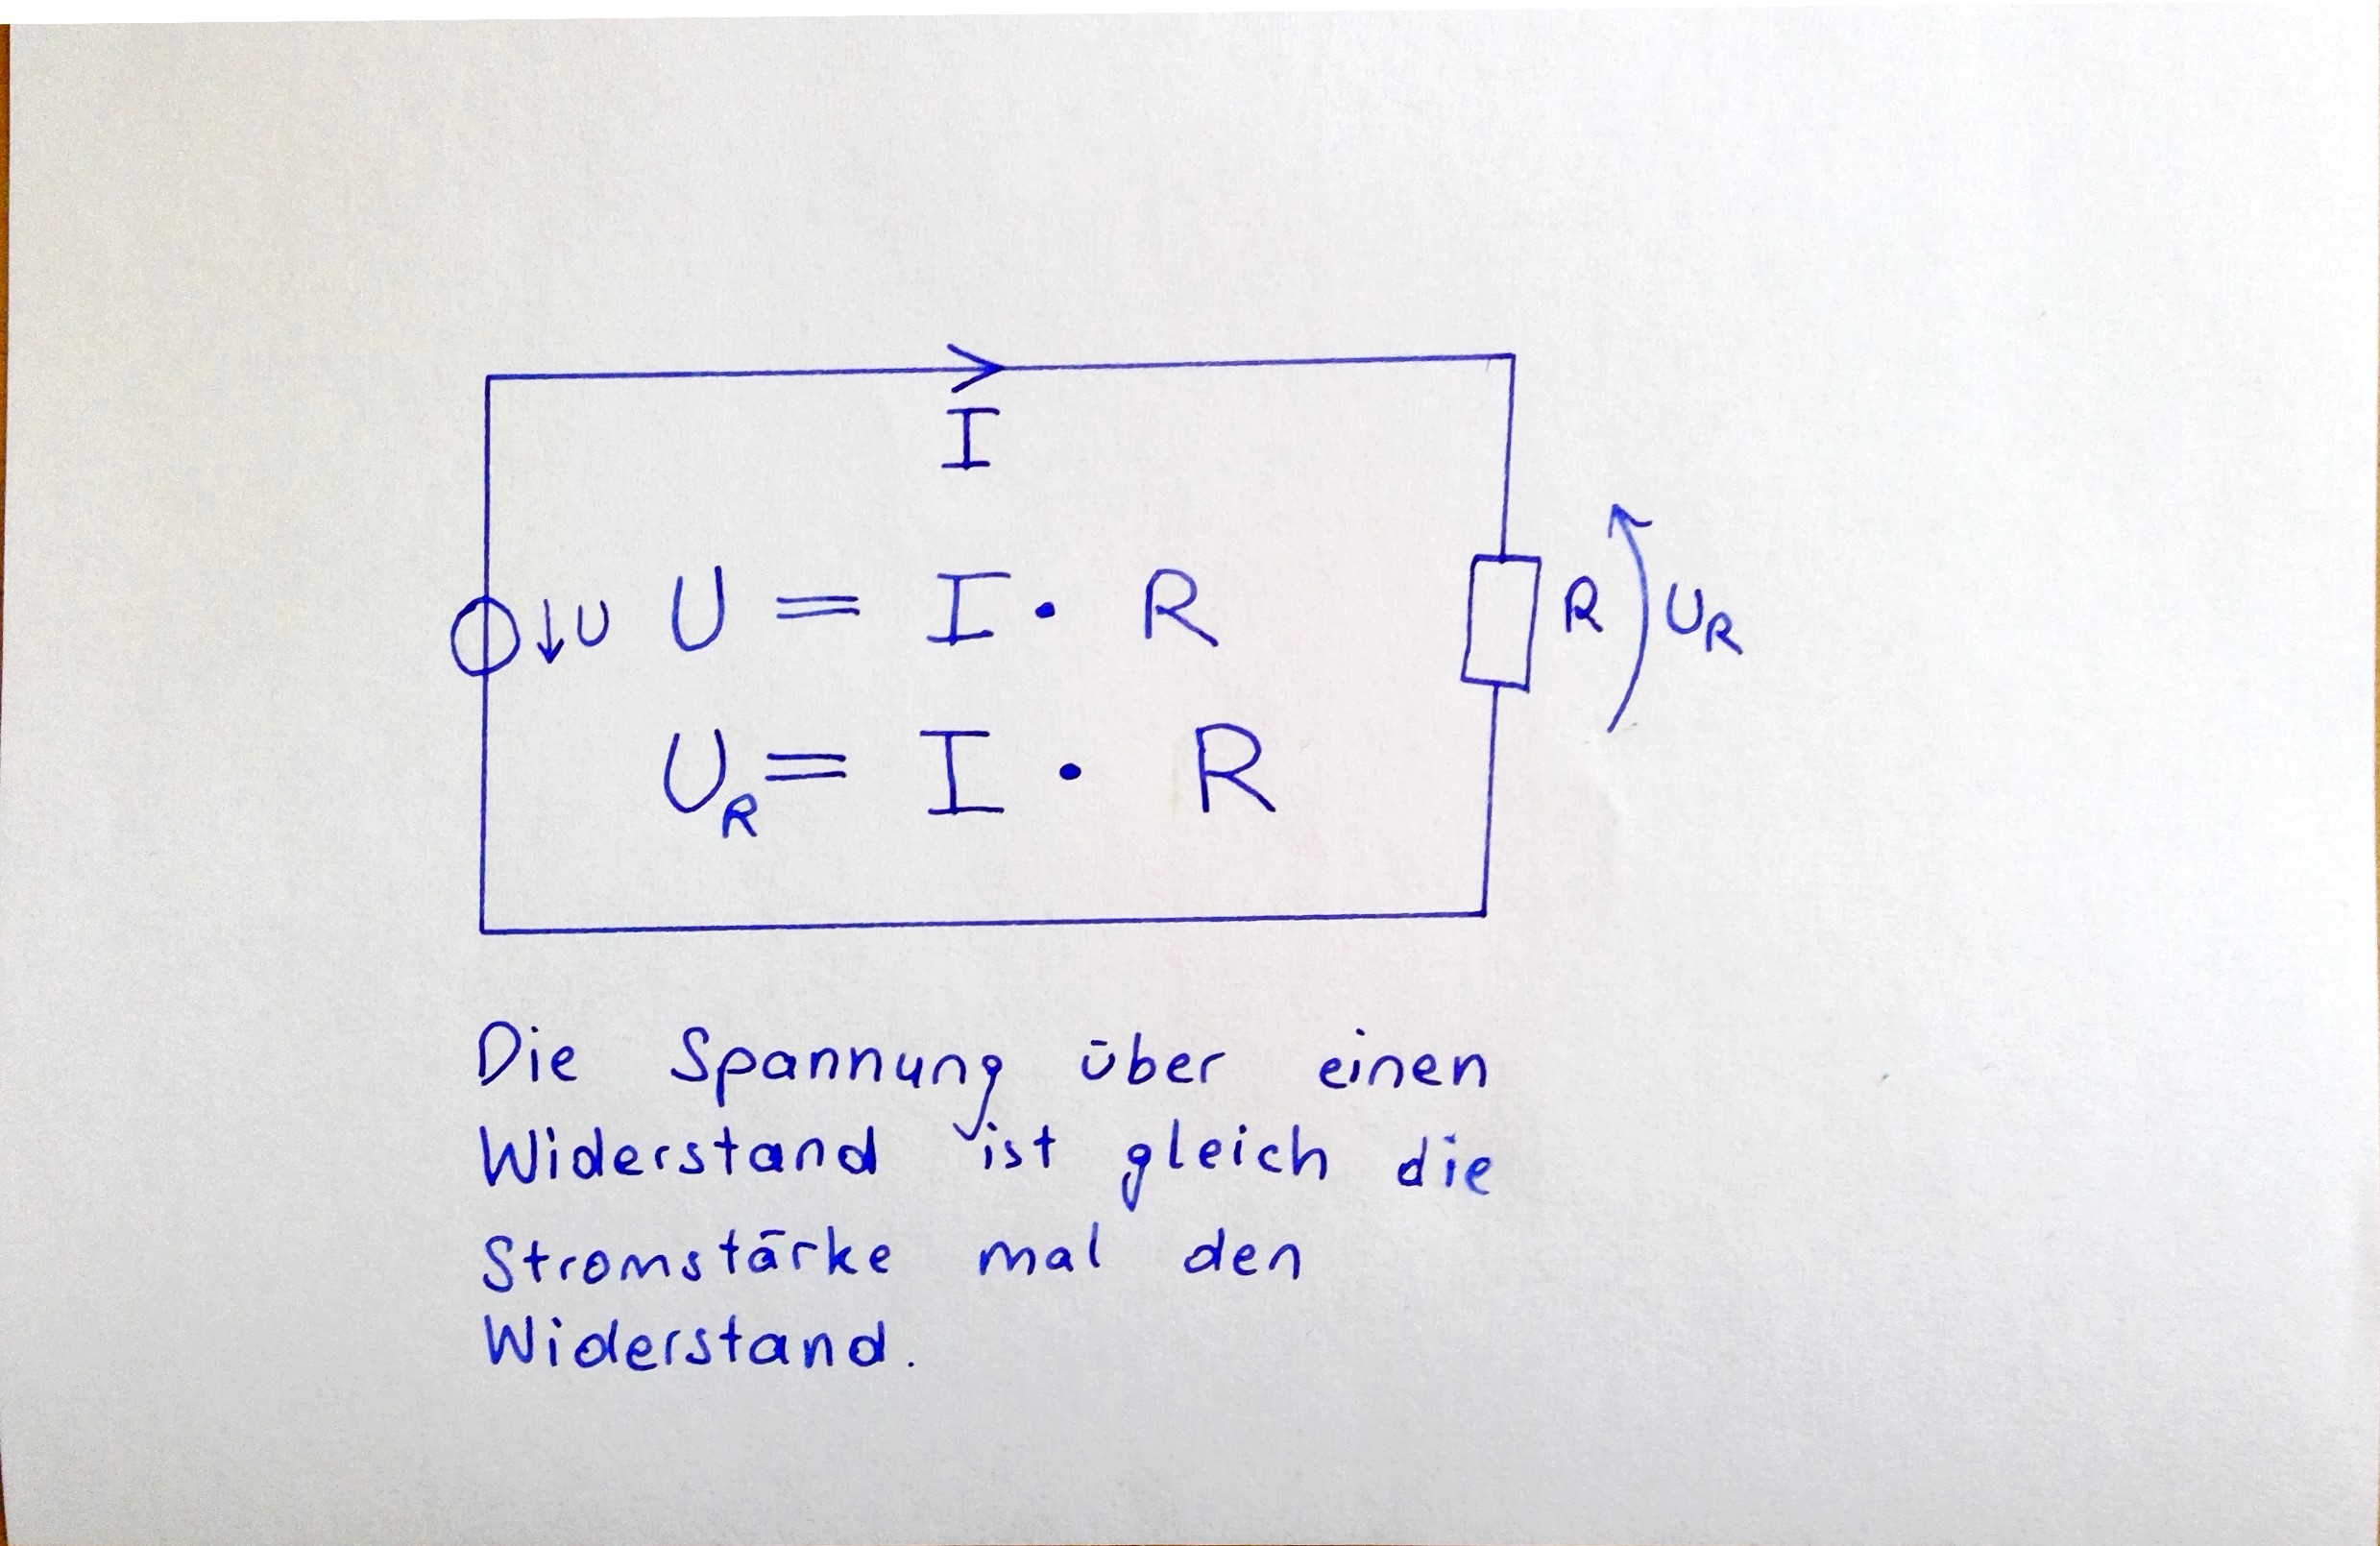 I
U
U = I · R
R
U_R
U_R = I · R
Die Spannung über einen
Widerstand ist gleich die
Stromstärke mal den
Widerstand.